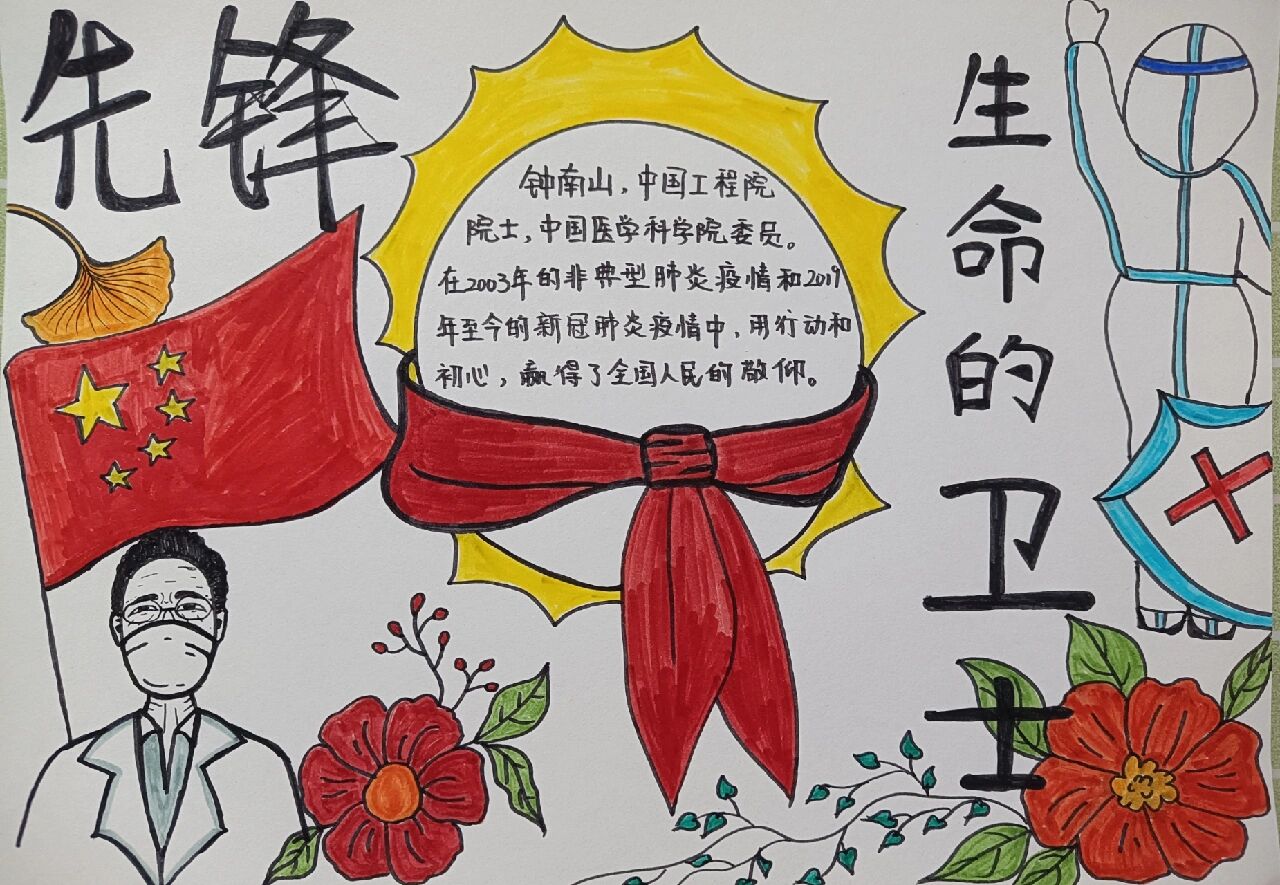 先锋
钟南山，中国工程院
院士，中国医学科学院委员。
在2003年的非典型肺炎疫情和2019
年至今的新冠肺炎疫情中，用行动和
初心，赢得了全国人民的敬仰。
生命的卫士